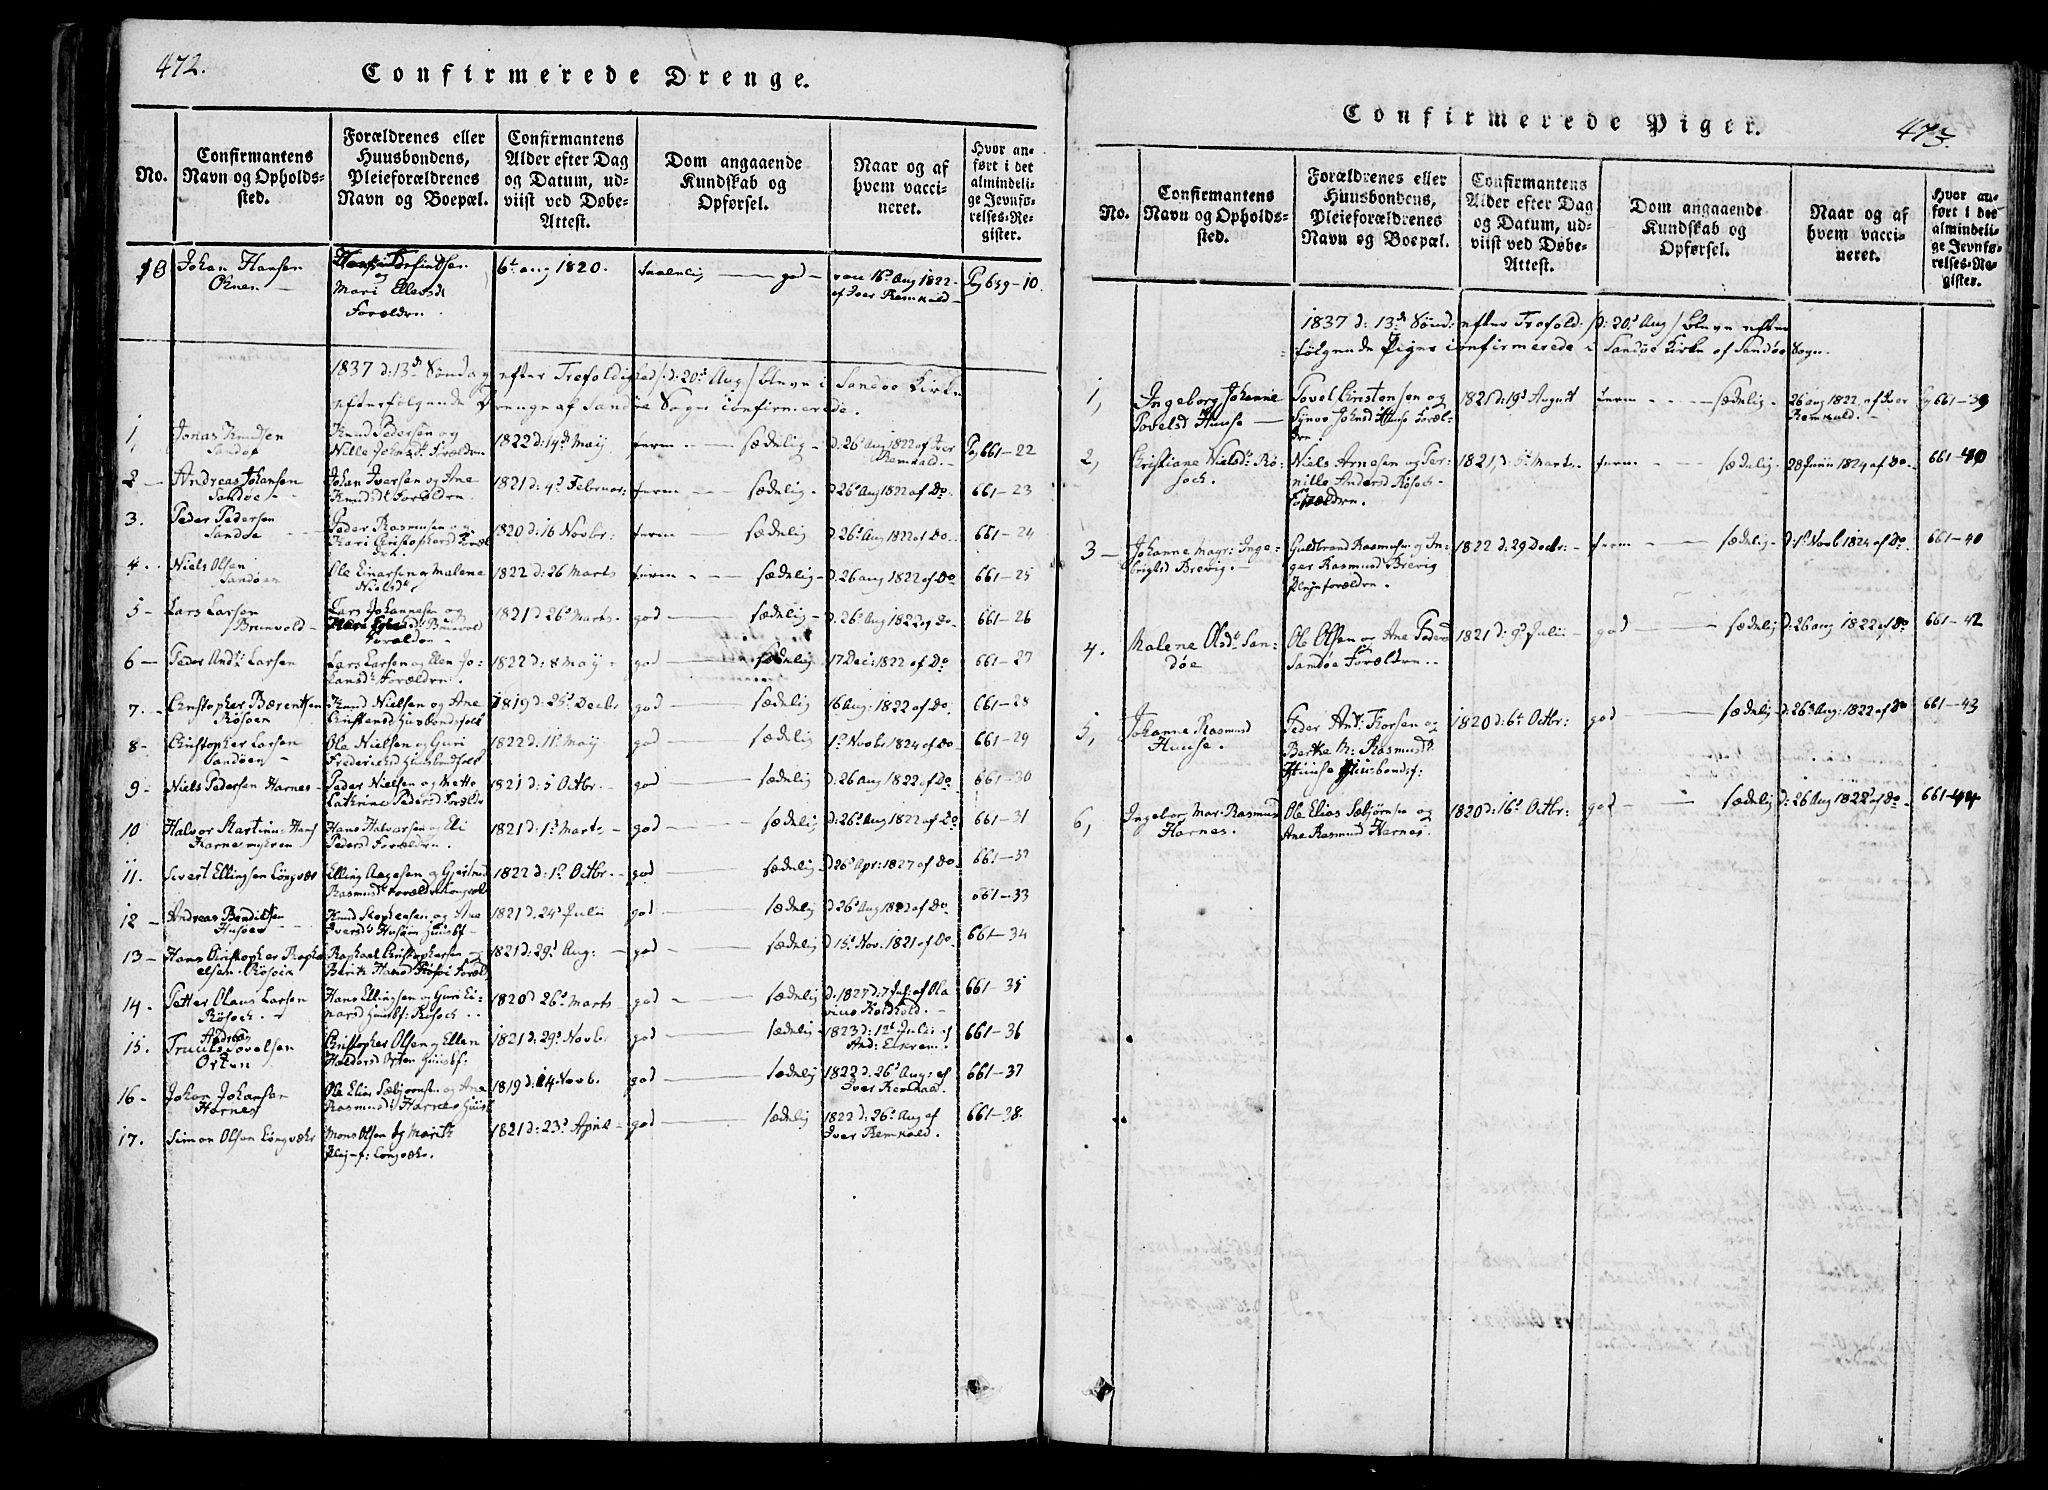 472.
Confirmerede Drenge.
No.
Confirmantens
Navn og Opholds-
sted.
Forældrenes eller
Huusbondens,
Pleieforældrenes
Navn og Boepæl.
Confirmantens
Alder efter Dag
og Datum, ud-
viist ved Døbe-
Attest.
Dom angaaende
Kundskab og
Opførsel.
Naar og af
hvem vacci-
neret.
Hvor an-
ført i det
almindeli-
ge Jevnfø-
relses-Re-
gister.
Johan Hansen
og
Mari
Forældrn
6te aug 1820.
god
16de Aug 1822
af Iver Remvold
Pag 659-10.
1837 d: 13de Søndag efter Trefoldighed /: d: 20de Aug / bleve i Sandøe Kirke
efterfølgende Drenge af Sandøe Sogn confirmerede.
1, Jonas Knudsen
Sandøe
Knud Pedersen og
Nille Johnsd. Forældrn
1822 d: 14de May
sædelig
d. 26de Aug 1822 af Iver
Remvold.
Pag 661-22
2 Andreas Johansen
Sandøe
Johan Iversen og Ane
Knudsd. Forældrn
1821 d: 4de Februar:
sædelig
d. 26de Aug 1822 af Do
661-23
3. Peder Pedersen
Sandøe
Peder Rasmusen og
Kari Christophersd Foræl
drn
1820 d: 16 Novbr:
sædelig
d. 26de Aug 1822 af Do
661-24
4. Niels Olsen
Sandøen
Ole Einarsen og Malene
Nielsd.
1822 d: 26 Marts
sædelig
d. 26 aug 1822 af Do
661-25
5 - Lars Larsen
Brunvold
Lars Johannesen og
Brunvold
Forældrn
1821 d: 26de Marts
god
sædelig
d. 26de Aug 1822 af Do
661-26
6 Peder And: Larsen
Lars Larsen og Elen Jo-
hansd. Forældrn.
1822 d: 8 May
god
sædelig
17 Dec: 1822 af Do
661-27
7. Christopher Bærentsen
Røsoen
Knud Nielsen og Ane
Christensd Huusbondsfolk
1819 d: 25de Decbr
god
sædelig
16 Aug: 1822 af Do
661-28
8- Christopher Larsen
Sandøen
Ole Nielsen og Guri
Fredericsd Huusbondsfolk
1822 d: 11te May
god
sædelig
1te Novbr 1824 af Do
661-29
9 Niels Pedersen Harnes
Peder Nielsen og Mette
Cathrine Pedersd Forældr
1821 d: 5 Octbr.
god
sædelig
d. 26 Aug 1822 af Do
661-30
10 Halvor Martinus Hans
Harnesmyren
Hans Halvorsen og Eli
Pedersd Forældrn.
1821 d: 1te Marts
god
sædelig
d: 26de Aug 1822 af Do
661-31
11. Sivert Ellingsen Longvæk
Elling Aagesen og Gjertrud
Rasmusd. Forældr Longvæk
1822 d: 1te Octbr.
god
sædelig
d 26de Apr: 1827 af Do
661-32
12 - Andreas Bendiktsen
Husøen
Knud Stephensen og Ane
Iversd. Husøen Huusbf
1821 d. 24de Julii
god
sædelig
d 26de Aug 1822 af Do
661-33
13 - Hans Christopher Rapha
elsen. Røsoen
Raphael Christophersen og
Berit Hansd Røsoe Foræld
1821 d: 29de Aug:
god
sædelig
d 15de Nov. 1821 af Do
661-34
14. Petter Olaus Larsen
Røsoch.
Hans Ellingsen og Guri Ei-
narsd Huusbf: Røsoch
1820 d: 26de Marts
god
sædelig
d. 1827 d: 7 Jul: af Ola
vius Koldhold.
661-35
15. Truuls Andreas Povelsen
Orten
Christopher Olsen og Ellen
Haldorsd Orten Huusbf:
1821 d: 29de Novbr
god
sædelig
1823 d: 12te Julii af
And: Elkrem
661-36
16 - Johan Johansen
Harnes
Ole Elias Sæbjørnsen og Ane
Rasmusd: Harnes Huusf
1819 d: 14 Novb.
god
sædelig
1822 d: 26de Aug: af
Iver Remvold.
661-37
17. Simon Olsen Longvæk
Mons Olsen og Marith
Pleje-f: Longvæk.
1821 d: 23de April
god
sædelig
1822 d: 26de Aug af
Iver Remvold.
661-38.
473.
Confirmerede Piger.
No.
Confirmantens
Navn og Opholds-
sted.
Forældrenes eller
Huusbondens,
Pleieforældrenes
Navn og Boepæl.
Confirmantens
Alder efter Dag
og Datum, ud-
viist ved Døbe-
Attest.
Dom angaaende
Kundskab og
Opførsel.
Naar og af
hvem vacci-
neret.
Hvor an-
ført i det
almindeli-
ge Jevnfø-
relses-Re-
gister.
1837 d: 13de Sønd: efter Trefold: /d: 20de Aug / bleve efter
følgende Piger confirmerede i Sandøe Kirke af Sandøe Sogn.
1, Ingeborg Johanne
Povelsd Huuse
Povel Christensen og
Synve Johnsd Huuse Foræl-
drn.
1821 d: 19de August
sædelig
26 aug 1822. af Iver
Remvold.
661-39
2, Christiane Nielsd. Rø-
soch.
Niels Arnesen og Per-
nille Andersd Røsoch
Forældrn.
1821, d: 5te Marts
sædelig
28 Junii 1824 af Do.
661-40
3 - Johanne Magr: Inge-
brigtsd Brevig.
Guldbrand Rasmusen og In-
ger Rasmusd Brevig
Plejeforældrn.
1822 d: 29 Decbr:
sædelig
d: 1te Novb 1824 af Do.
661-40
4. Malene Olsd. San-
døe
Ole Olsen og Ane Pedersd
Sandøe Forældrn.
1821 d: 9de Julii
god
sædelig
d: 26 aug 1822 af Do
661-42
5, Johanne Rasmusd
Huuse.
Peder And: Thorsen og
Berthe M: Rasmusd.
Huuse Huusbondsf:
1820 d: 6te Octbr:
god
sædelig
d: 26de Aug: 1822 af Do
661-43
6, Ingebor Mar. Rasmusd
Harnes.
Ole Elias Sæbjørnsen og
Ane Rasmusd Harnes
1820 d: 16de Octbr:
god
sædelig
d: 26 Aug 1822 af Do
661-44